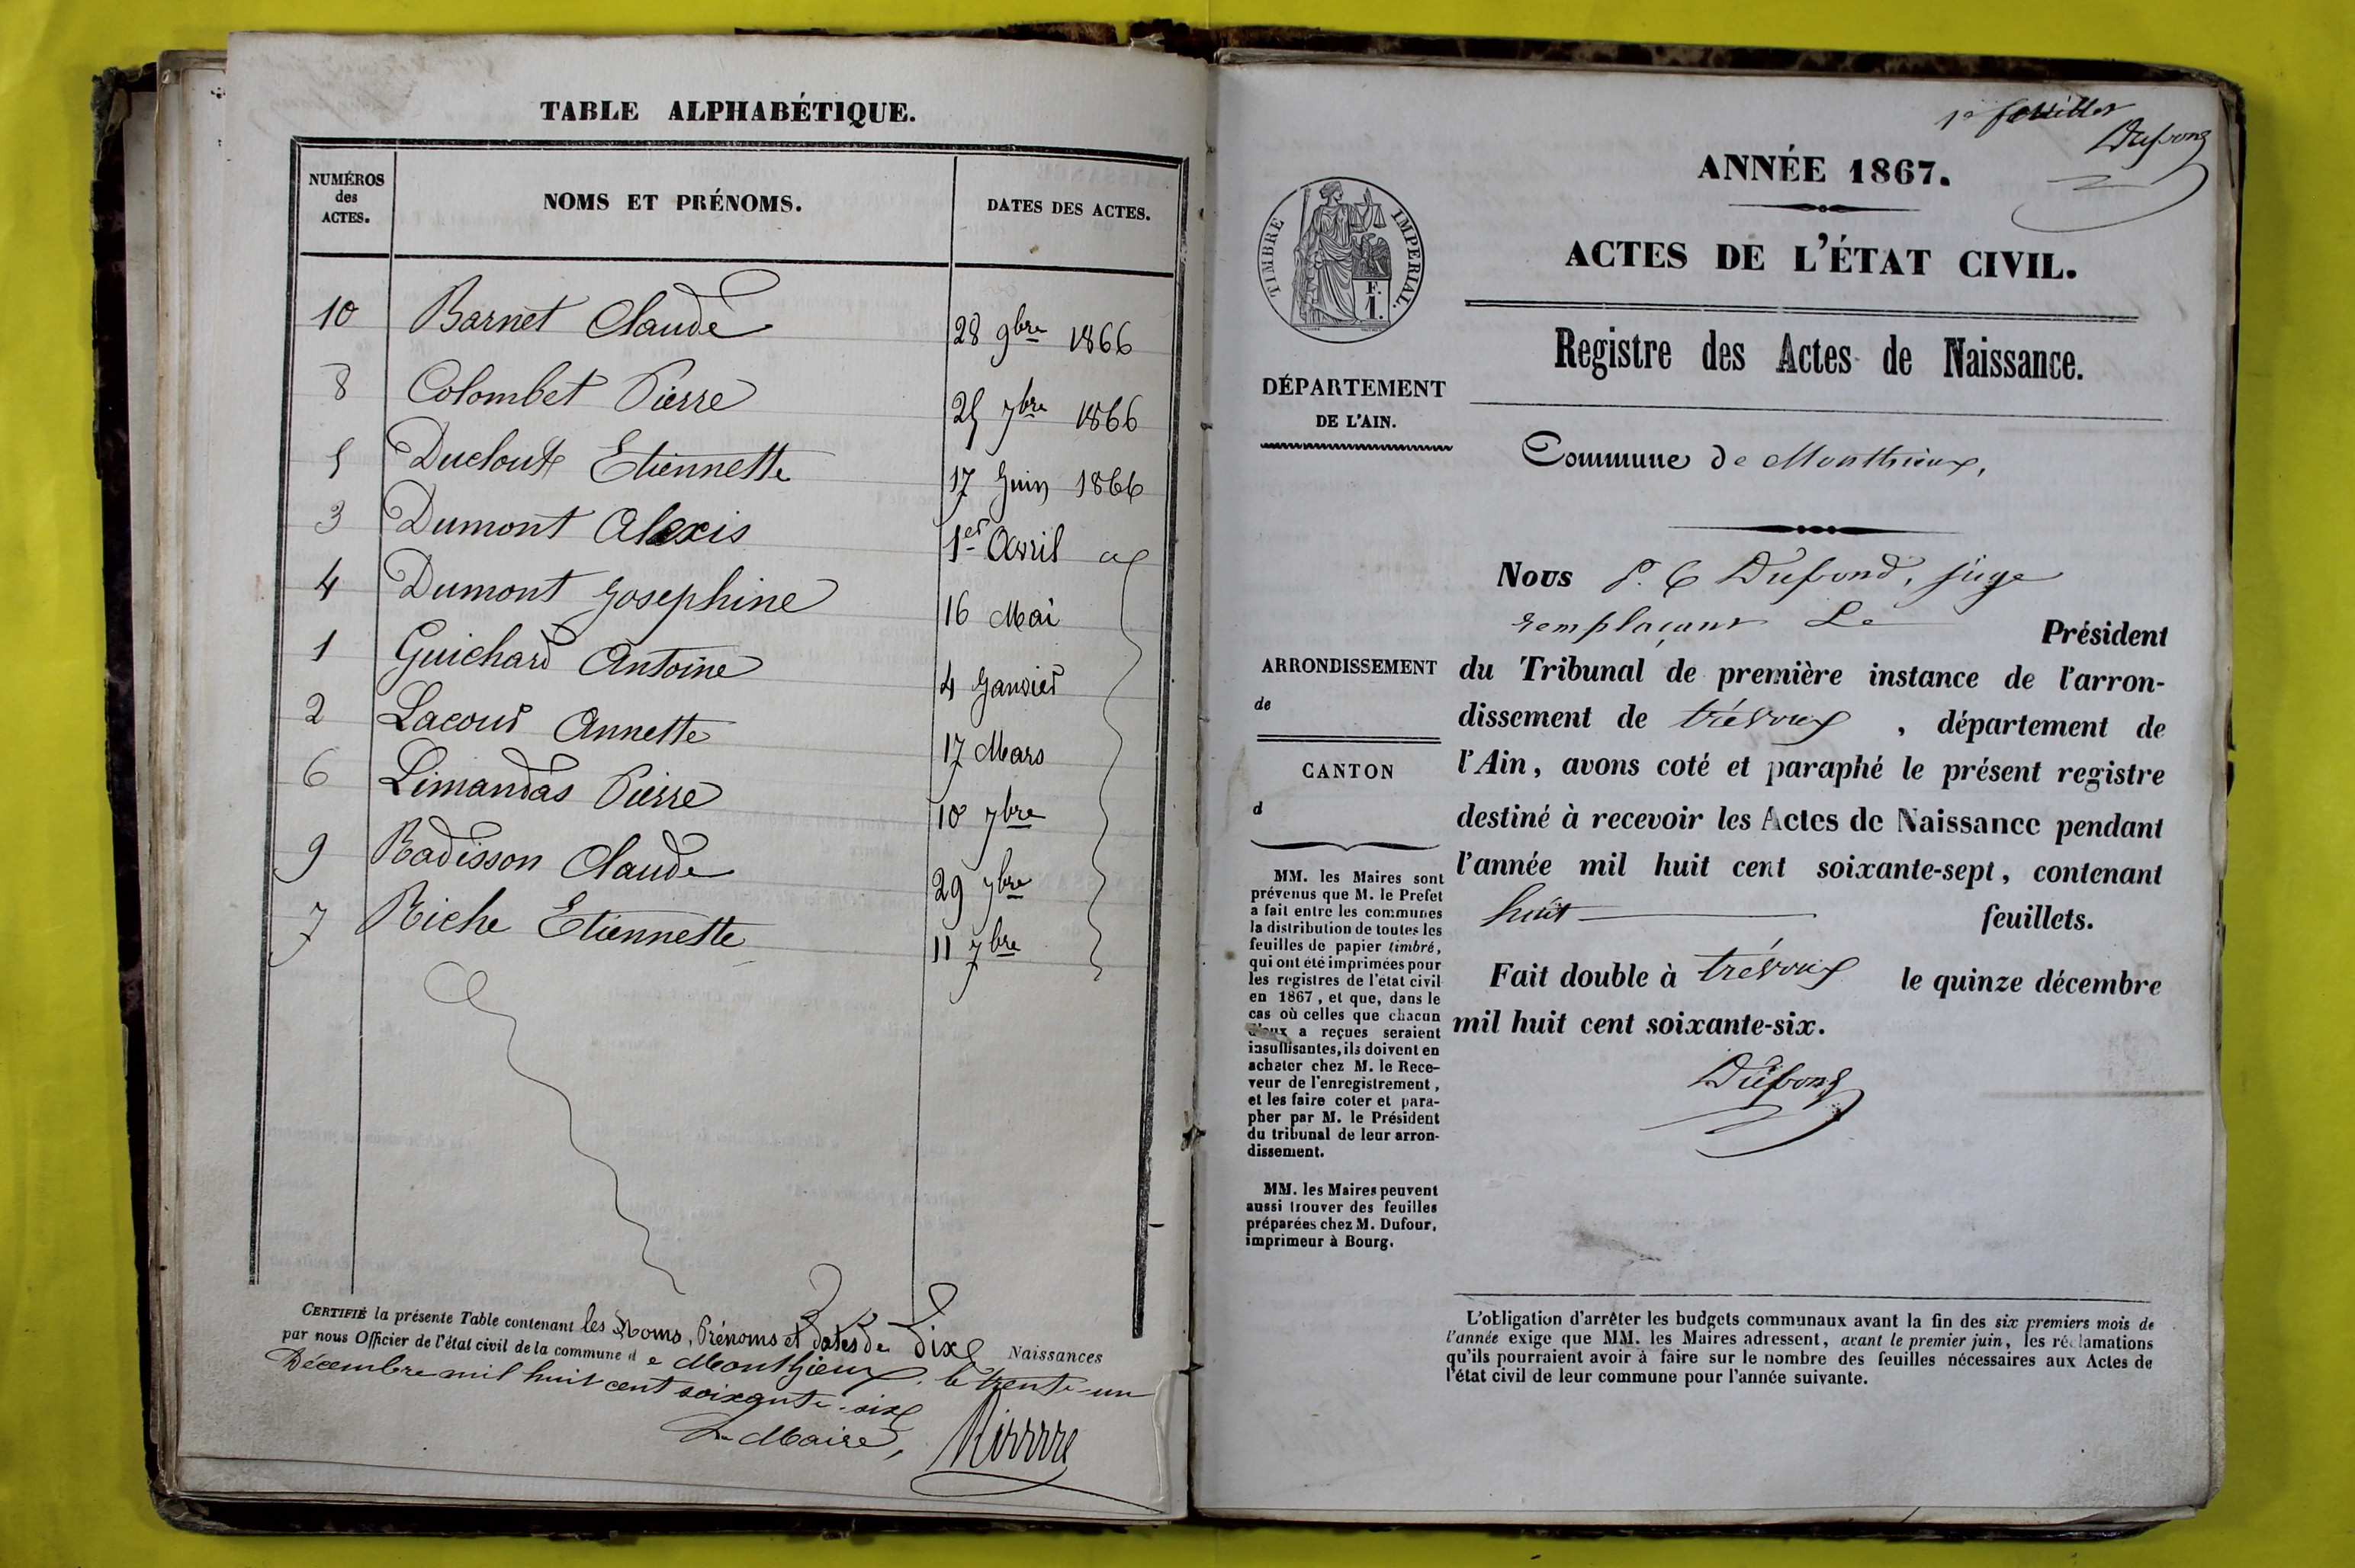 TABLE ALPHABÉTIQUE.
NUMÉROS des ACTES.
NOMS ET PRÉNOMS.
DATES DES ACTES.
10 Barnet Claude 28 9bre 1866
8 Colombet Pierre 25 7bre 1866
5 Ducloux Etiennette 17 Juin 1866
3 Dumont Alexis 1er Avril
4 Dumont Josephine 16 Mai
1 Guichard Antoine 4 Janvier
2 Lacour Annette 17 Mars
6 Limandas Pierre 10 7bre
9 Radisson Claude 29 7bre
7 Riche Etiennette 11 7bre
CERTIFIÉ la présente Table contenant les Noms, Prénoms et dates de dix Naissances
par nous Officier de l'état civil de la commune de Monthieux. le trente-un
Décembre mil huit cent soixante-six
Le Maire,
1er feuillet
Dufond
ANNÉE 1867.
TIMBRE IMPERIAL.
F.
1.
ACTES DE L'ÉTAT CIVIL.
Registre des Actes de Naissance.
DÉPARTEMENT
DE L'AIN.
Commune de Monthieux,
Nous P. C Dufond, juge
remplaçant Le Président
du Tribunal de première instance de l'arron-
dissement de trévoux, département de
l'Ain, avons coté et paraphé le présent registre
destiné à recevoir les Actes de Naissance pendant
l'année mil huit cent soixante-sept, contenant
huit feuillets.
Fait double à trévoux le quinze décembre
mil huit cent soixante-six.
Dufond
ARRONDISSEMENT
de
CANTON
d
MM. les Maires sont
prévenus que M. le Prefet
a fait entre les communes
la distribution de toutes les
feuilles de papier timbré,
qui ont été imprimées pour
les registres de l'état civil
en 1867, et que, dans le
cas où celles que chacun
d'eux a reçues seraient
insuffisantes, ils doivent en
acheter chez M. le Rece-
veur de l'enregistrement,
et les faire coter et para-
pher par M. le Président
du tribunal de leur arron-
dissement.
MM. les Maires peuvent
aussi trouver des feuilles
préparées chez M. Dufour,
imprimeur à Bourg.
L'obligation d'arrêter les budgets communaux avant la fin des six premiers mois de
l'année exige que MM. les Maires adressent, avant le premier juin, les réclamations
qu'ils pourraient avoir à faire sur le nombre des feuilles nécessaires aux Actes de
l'état civil de leur commune pour l'année suivante.